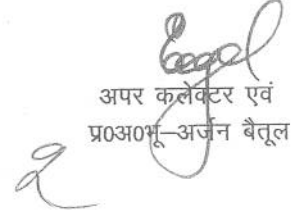 अपर कलेक्टर एवं
प्र0अ0भू–अर्जन बैतूल